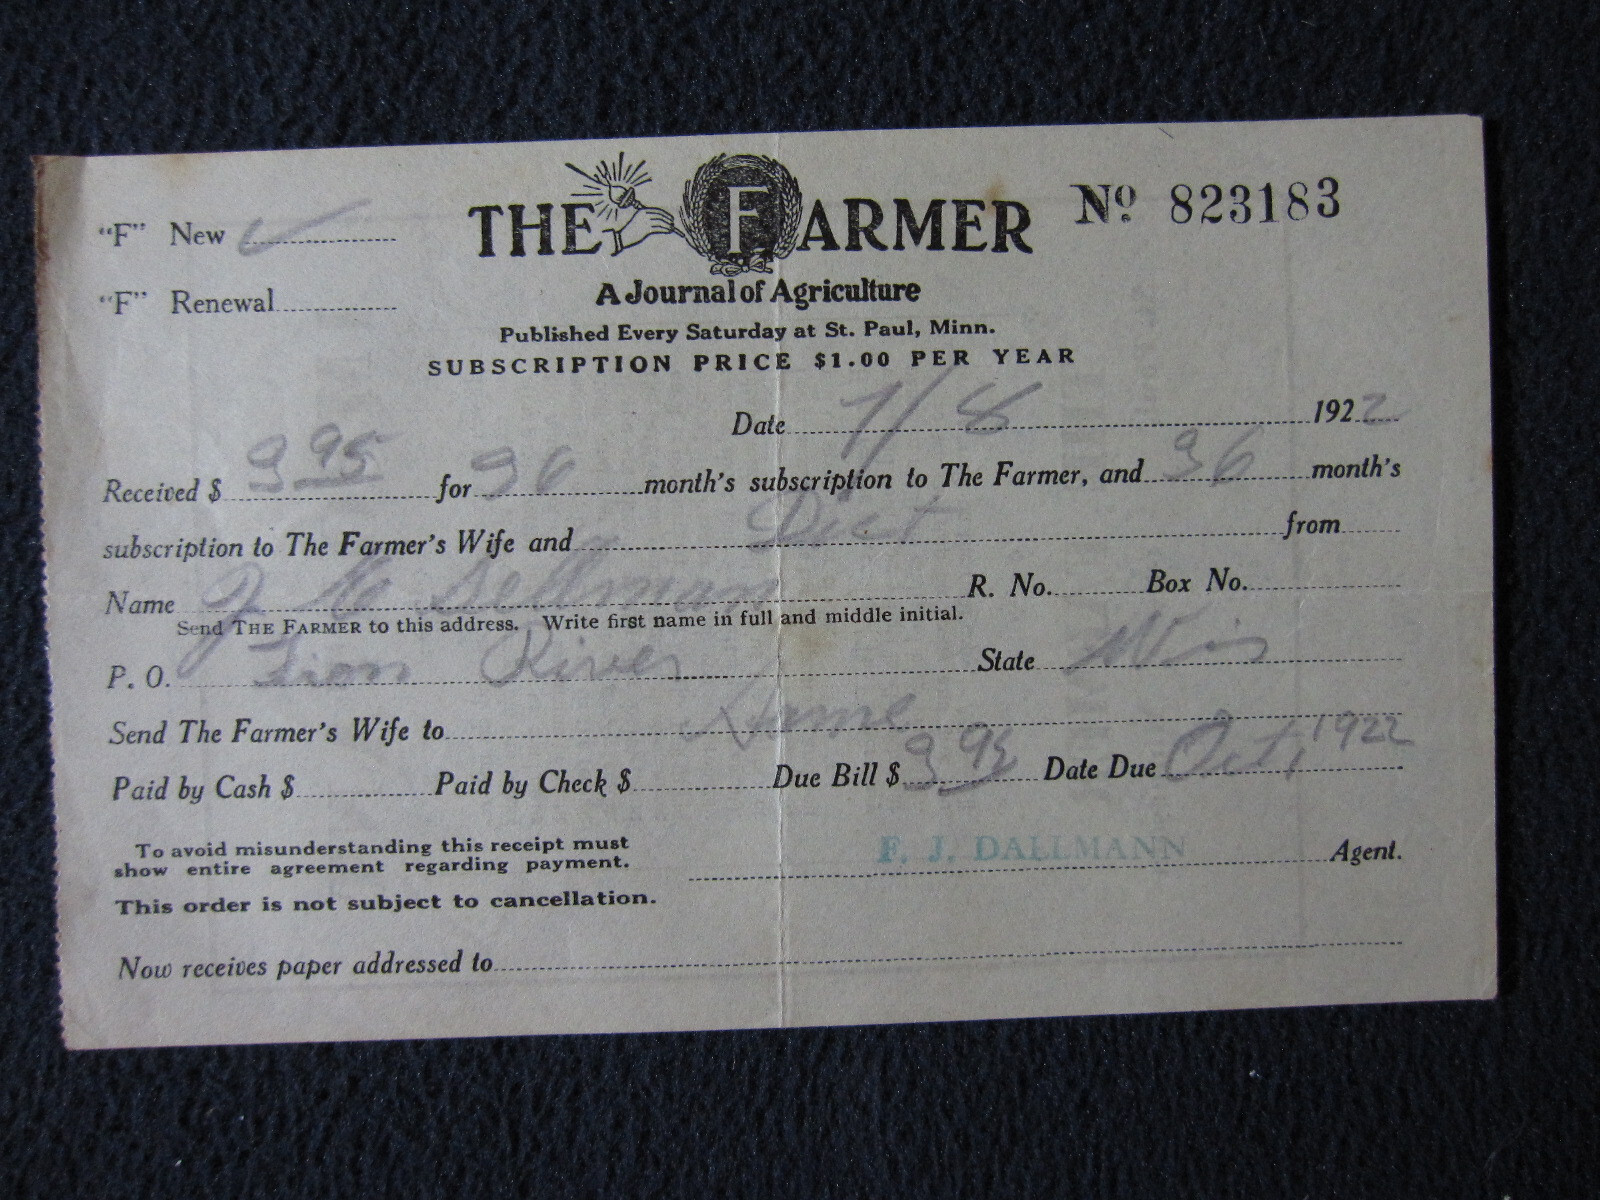 "F" New
THE FARMER
Nº 823183
"F" Renewal
A Journal of Agriculture
Published Every Saturday at St. Paul, Minn.
SUBSCRIPTION PRICE $1.00 PER YEAR
Date 7/8 1922
Received $ 3 95 for 36 month's subscription to The Farmer, and 36 month's
subscription to The Farmer's Wife and Dict from
Name Sellman R. No. Box No.
Send THE FARMER to this address. Write first name in full and middle initial.
P. O. Iron River State Wis
Send The Farmer's Wife to Same
Paid by Cash $ Paid by Check $ Due Bill $ 3 95 Date Due Oct, 1922
To avoid misunderstanding this receipt must
show entire agreement regarding payment.
F. J. DALLMANN Agent.
This order is not subject to cancellation.
Now receives paper addressed to